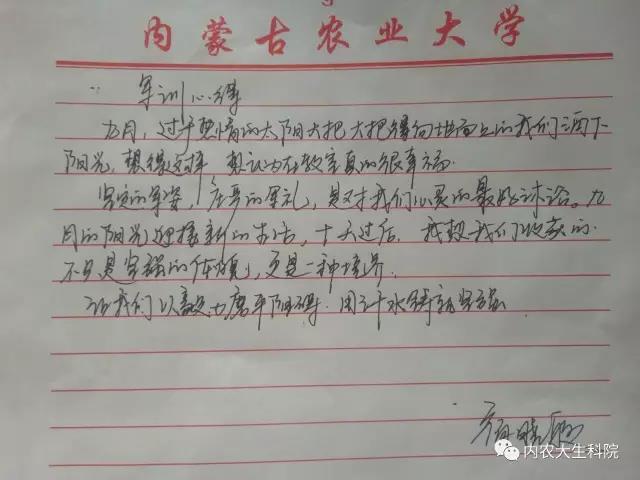 内蒙古农业大学
军训心得
九月，过于热情的太阳大把大把得向地面上的我们洒下
阳光，想得这样 想认为在教室真的很幸福.
坚定的军姿，庄严的军礼，是对我们心灵的最好讨论。九
月的阳光迎接新的生活，十天过后 我想我们收获的.
不只是坚强的体魄，更是一种境界.
让我们以毅力磨平阻碍. 用汗水铸就坚强
内农大生科院